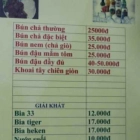 Bún chả thường 25000đ
Bún chả đặc biệt 35.000đ
Bún nem (chả giò) 25.000đ
Bún đậu mắm tôm 25.000đ
Bún đậu đầy đủ 40-50.000đ
Khoai tây chiên giòn 30.000đ
GIẢI KHÁT
Bia 33 12.000đ
Bia tiger 17.000đ
Bia heken 17.000đ
10.000đ